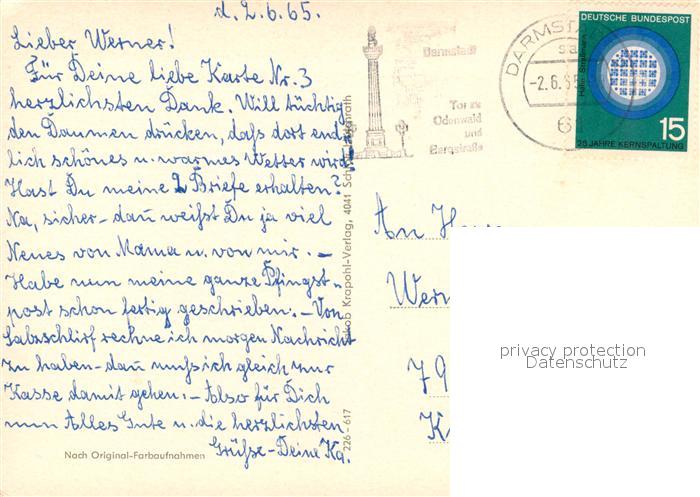 d. 2.6.65.
Lieber Werner!
Für Deine liebe Karte Nr. 3
herzlichsten Dank. Will tüchtig
den Daumen drücken, daß dort end-
lich schönes u. warmes Wetter wird.
Hast Du meine 2 Briefe erhalten?
Na, sicher - dan weißt Du ja viel
Neues von Mama u. von mir. -
Habe nun meine ganze Pfingst-
post schon fertig geschrieben. - Von
Salzschlirf rechne ich morgen Nachricht
zu haben - dan muß ich gleich zur
Kasse damit gehen. - Also für Dich
nun Alles Gute u. die herzlichsten
Grüße - Deine Ka.
Nach Original-Farbaufnahmen
226-617
Krapohl-Verlag, 4041
Darmstadt
Tor zu
Odenwald
und
Bergstraße
DARMSTADT
-2.6.65
61
DEUTSCHE BUNDESPOST
Hahn · Straßmann
15
25 JAHRE KERNSPALTUNG
An
79
K
privacy protection
Datenschutz